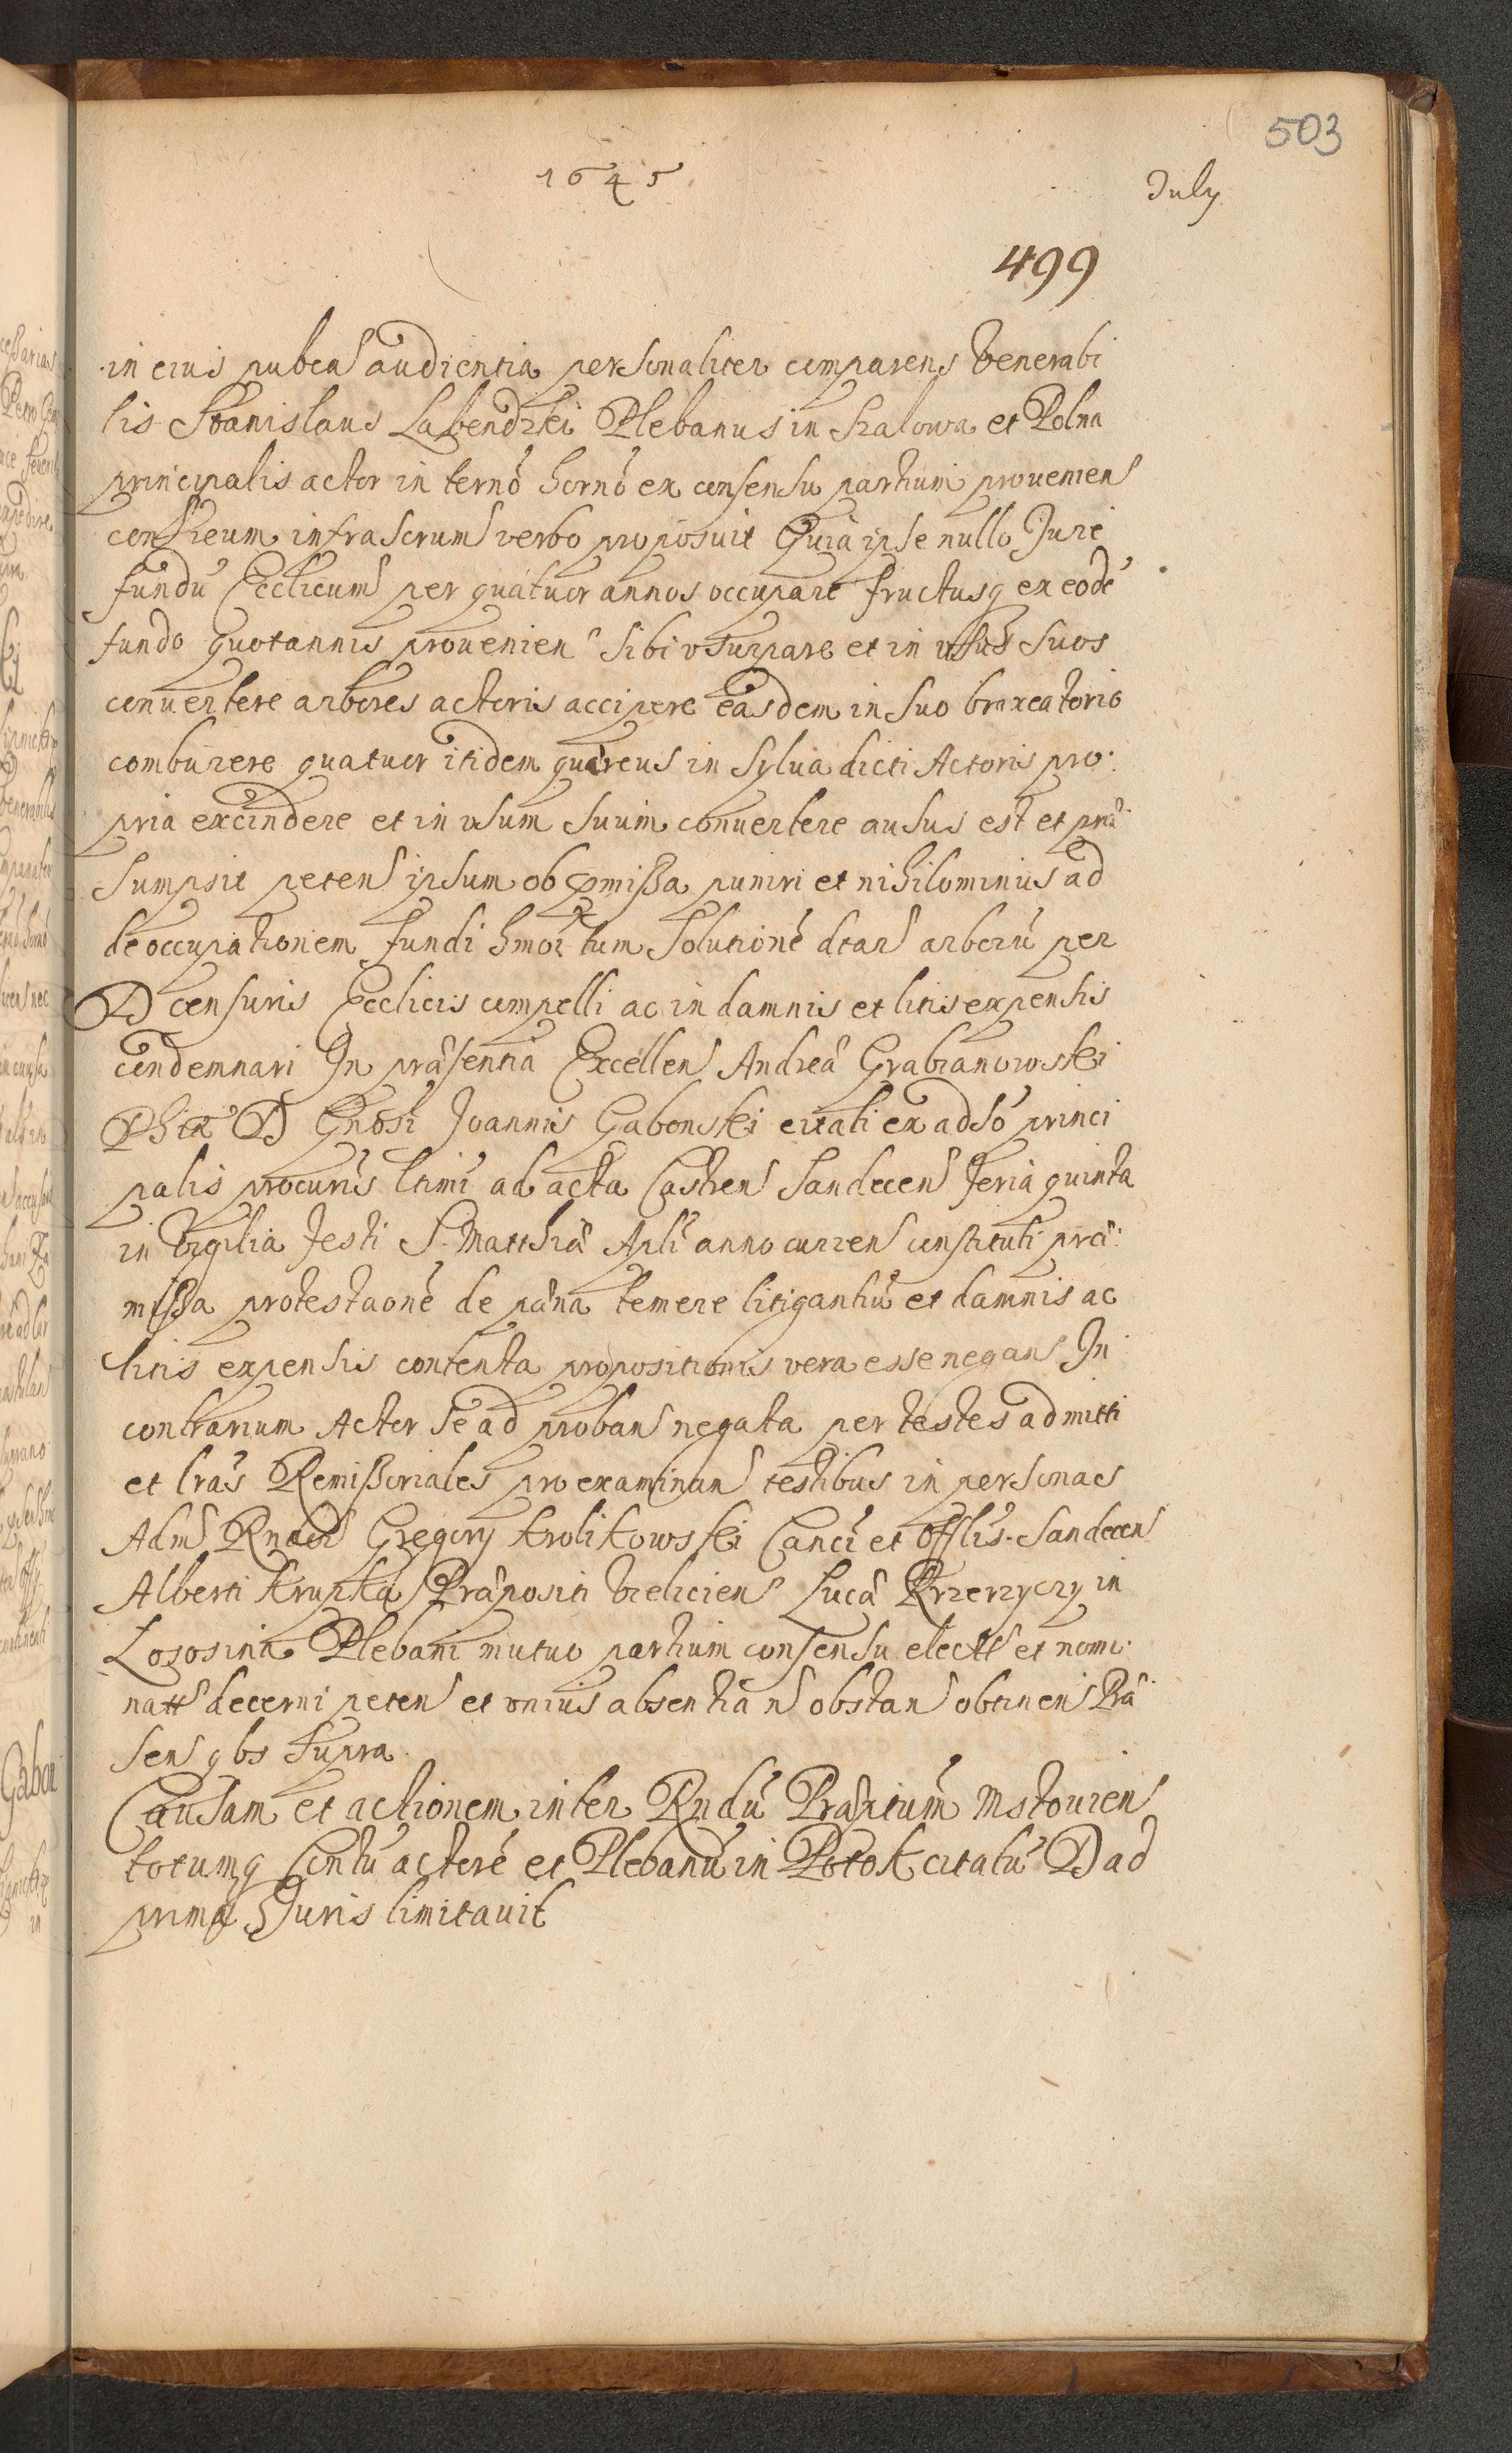 503
1645
July
499
in eius pubca audientia personaliter comparens Venerabi
lis Stanislaus Labendzki Plebanus in Szalowa et Polna
principalis actor in ternō hornō ex consensu partium prouenien
contra eum infrascrum verbo proposuit Quia ipse nullo Jure
fundū Ecclicum per quatuor annos occupare fructusq ex eodē
fundo quotannis prouenien sibi vsurpare et in vsus suos
conuertere arbores actoris accipere easdem in suo braxeatorio
comburere quatuor itidem quercus in sylua dicti Actoris pro
pria excindere et in vsum suum conuertere ausus est et præ
sumpsit peten ipsum ob præmissa puniri et nihilominus ad
de occupationem fundi hmōi tum solutionē dtar arborū per
D censuris Ecclicis compelli ac in damnis et litis expensis
condemnari In præsentia Excellen Andreæ Grabianowski
Phiæ D Gnosi Joannis Gabonski citati ex adso princi
palis procuris ltimi ad acta Castren Sandecen Feria quinta
in Vigilia Festi S. Matthiæ Apli anno curren constituti præ
missa protestaone de pæna temere litigantiū et damnis ac
litis expensis contenta propositionis vera esse negan In
contrarium Actor se ad proban negata per testes admitti
et lras Remissoriales pro examinan testibus in personas
Adm Rndor Gregorij Krolikowski Canci et Offlis Sandecen
Alberti Krupka Præpositi Vieliciens Lucæ Przerzyczy in
Lososina Plebani mutuo partium consensu elect et nomi
natt decerni peten et vnius absentia n obstan obtinen Præ
sen qbs supra
Causam et actionem inter Rndū Præptum Mstouien
totumq Contū actorē et Plebanū in Potok citatū D ad
prima Juris limitauit